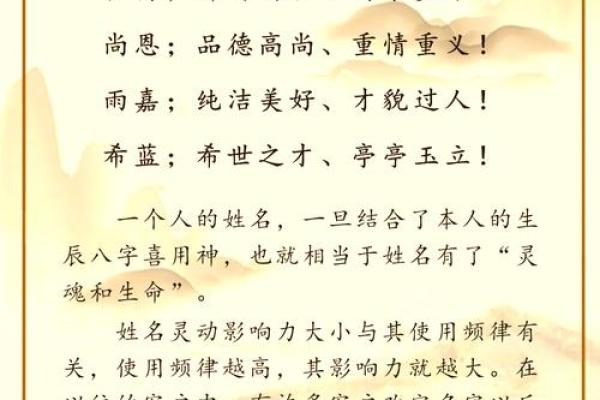 尚恩；品德高尚、重情重义！
雨嘉；纯洁美好、才貌过人！
希蓝；希世之才、亭亭玉立！
一个人的姓名，一旦结合了本人的生
辰八字喜用神，也就相当于姓名有了“灵
魂和生命”。
姓名灵动影响力大小与其使用频律有
关，使用频律越高，其影响力就越大。在